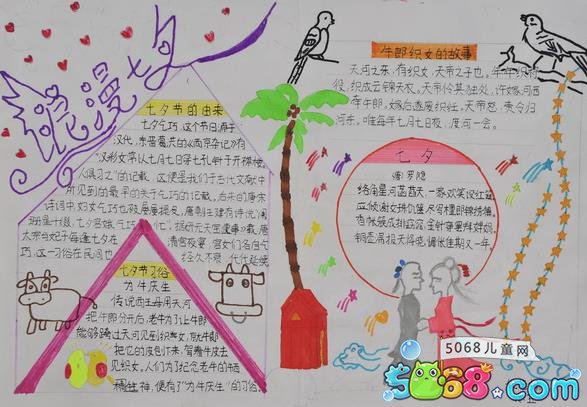 浪漫七夕
七夕节的由来
七夕乞巧，这个节日源于
汉代，东晋葛洪的《西京杂记》有
汉彩女常以七月七日穿七孔针于开襟楼，
人俱习之"的记载，这便是我们于古代文献中
所见到的最早的关于乞巧的记载。后来的唐宋
诗词中，妇女乞巧也被屡屡提及，唐朝王建有诗说"阑
太宗与妃子每逢七夕在
清宫夜宴，宫女们各自乞
这一习俗在民间也
经久不衰，代代延续
七夕节习俗
为牛庆生
传说西王母用天河
把牛郎
分开后，老牛为了让牛郎
能够跨过天河见到织女，
把它的皮刨下来，驾着牛皮去
见织女。人们为了纪念老牛的牺
牲精神，便有了"为牛庆生"的习俗。
牛郎织女的故事
天河之东，有织女，天帝之子也。年年织杼劳
役，织成云锦天衣。天帝怜其独处，许嫁河西
牵牛郎，嫁后遂废织纴。天帝怒，责令归
河东。唯每年七月七日夜，渡河一会。
七夕
唐 罗隐
络角星河菡萏天，一家欢笑设红筵。
应倾谢女珠玑箧，尽写檀郎锦绣篇。
香帐簇成排窈窕，金针穿罢拜婵娟。
铜壶漏报天将晓，惆怅佳期又一年。
5068儿童网
5068.com